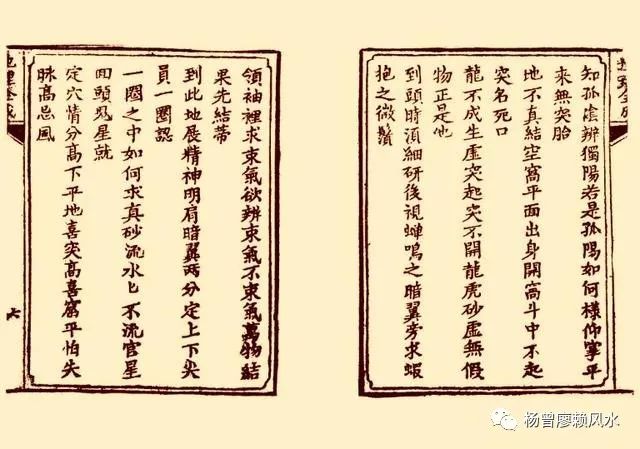 知孤陰辨獨陽若是孤陽如何樣仰掌平
來無突胎
地不真結空窩平面出身開窩斗中不起
突名死口
龍不成生虛突起突不開龍虎砂虛無假
物正是他
到頭時須細研後視蟬鳴之暗翼旁求蝦
抱之微鬚
領袖裡求束氣欲辨束氣不束氣萬物結
果先結蒂
到此地展精神明肩暗翼两分定上下尖
員一圈認
一圈之中如何求真砂流水匕不流官星
回頭鬼星就
定穴情分高下平地喜突高喜窩平怕失
脉高忌風
六
杨曾廖赖风水